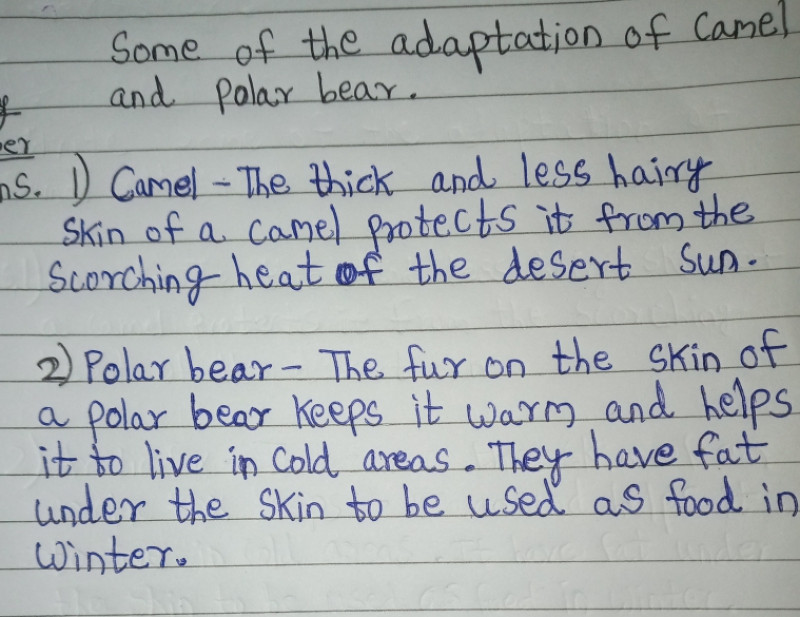 Some of the adaptation of Camel
and polar bear.
er
ns. 1) Camel - The thick and less hairy
Skin of a camel protects it from the
Scorching heat of the desert Sun.
2) Polar bear - The fur on the skin of
a polar bear keeps it warm and helps
it to live in cold areas. They have fat
under the skin to be used as food in
Winter.